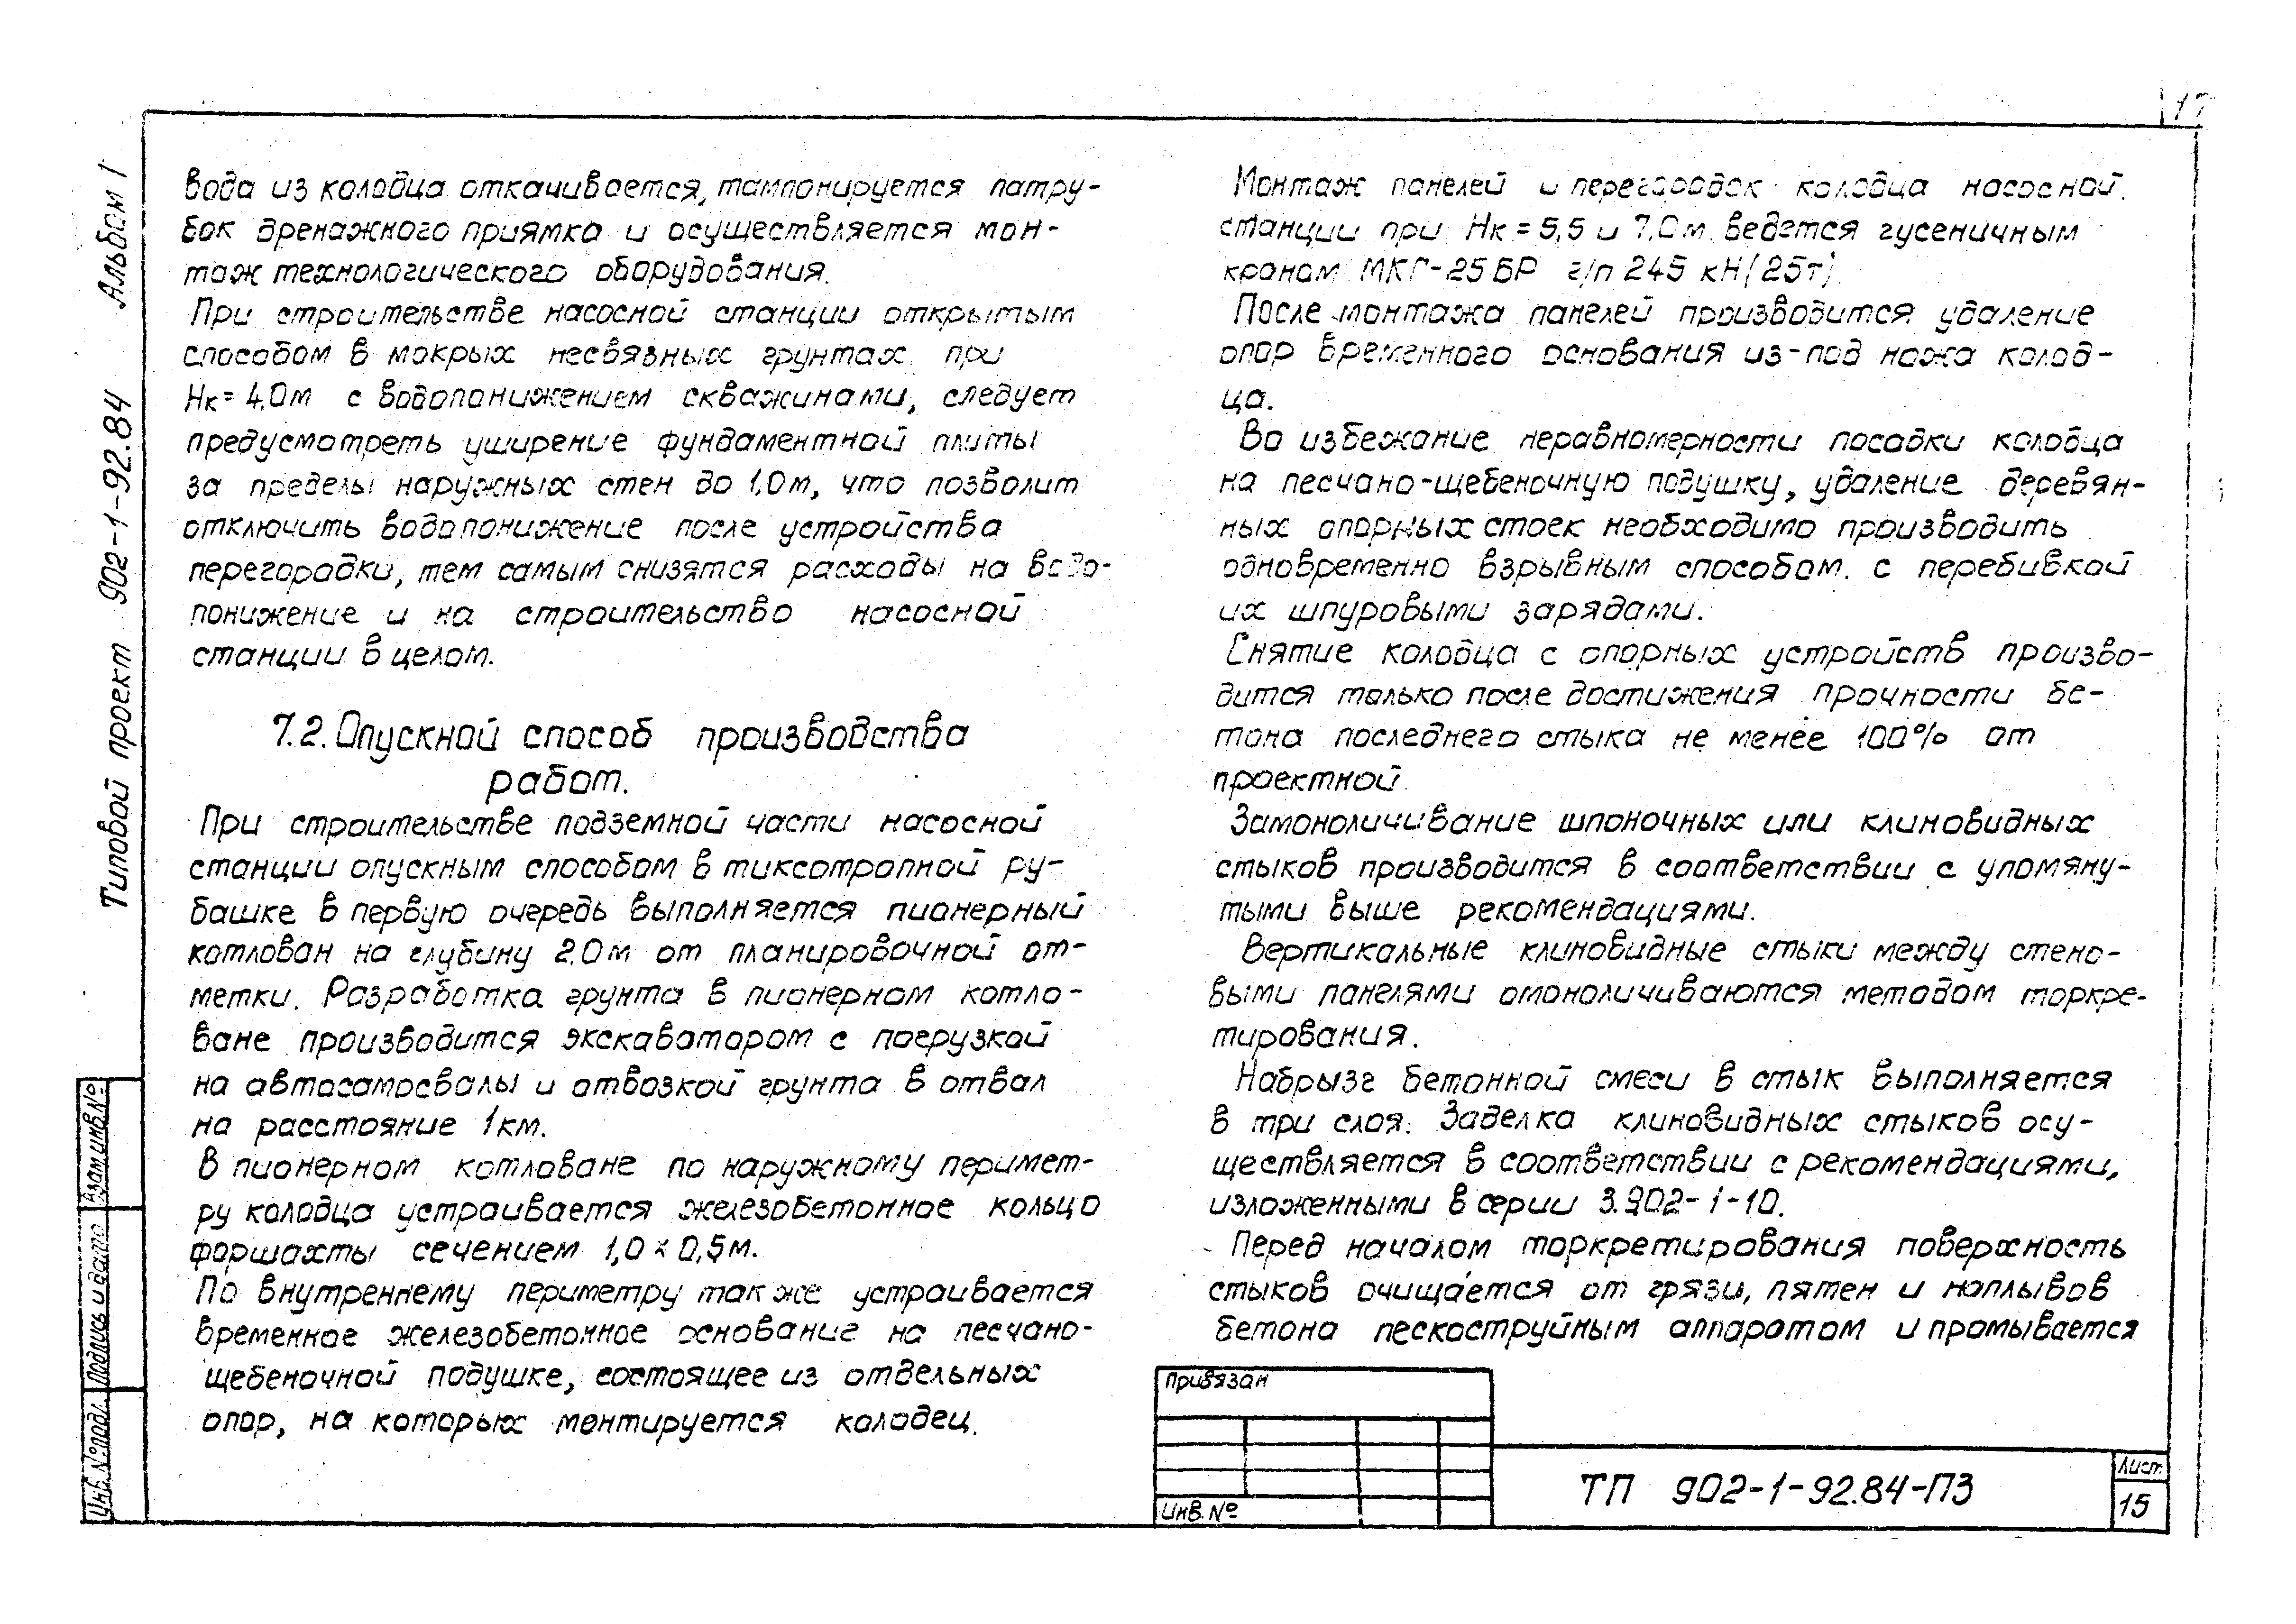 17
Типовой проект 902-1-92.84 Альбом I
вода из колодца откачивается, тампонируется патру-
бок дренажного приямка и осуществляется мон-
таж технологического оборудования.
При строительстве насосной станции открытым
способом в мокрых несвязных грунтах при
Нк= 4.0м с водопонижением скважинами, следует
предусмотреть уширение фундаментной плиты
за пределы наружных стен до 1,0м, что позволит
отключить водопонижение после устройства
перегородки, тем самым снизятся расходы на водо-
понижение и на строительство насосной
станции в целом.
7.2. Опускной способ производства
работ.
При строительстве подземной части насосной
станции опускным способом в тиксотропной ру-
башке в первую очередь выполняется пионерный
котлован на глубину 2.0м от планировочной от-
метки. Разработка грунта в пионерном котло-
ване производится экскаватором с погрузкой
на автосамосвалы и отвозкой грунта в отвал
на расстояние 1км.
В пионерном котловане по наружному перимет-
ру колодца устраивается железобетонное кольцо
форшахты сечением 1,0 × 0,5м.
По внутреннему периметру так же устраивается
временное железобетонное основание на песчано-
щебеночной подушке, состоящее из отдельных
опор, на которых монтируется колодец.
Монтаж панелей и перегородок колодца насосной
станции при Нк = 5,5 и 7,0м ведется гусеничным
краном МКГ-25БР г/п 245 кН(25т)
После монтажа панелей производится удаление
опор временного основания из-под ножа колод-
ца.
Во избежание неравномерности посадки колодца
на песчано-щебеночную подушку, удаление деревян-
ных опорных стоек необходимо производить
одновременно взрывным способом. с перебивкой
их шпуровыми зарядами.
Снятие колодца с опорных устройств произво-
дится только после достижения прочности бе-
тона последнего стыка не менее 100% от
проектной.
Замоноличивание шпоночных или клиновидных
стыков производится в соответствии с упомяну-
тыми выше рекомендациями.
Вертикальные клиновидные стыки между стено-
выми панелями омоноличиваются методом торкре-
тирования.
Набрызг бетонной смеси в стык выполняется
в три слоя. Заделка клиновидных стыков осу-
ществляется в соответствии с рекомендациями,
изложенными в серии 3.902-1-10.
Перед началом торкретирования поверхность
стыков очищается от грязи, пятен и наплывов
бетона пескоструйным аппаратом и промывается
Взам.инв.№
Подпись и дата
Инв.№подл.
Привязан
Инв. №
ТП 902-1-92.84-ПЗ
Лист
15